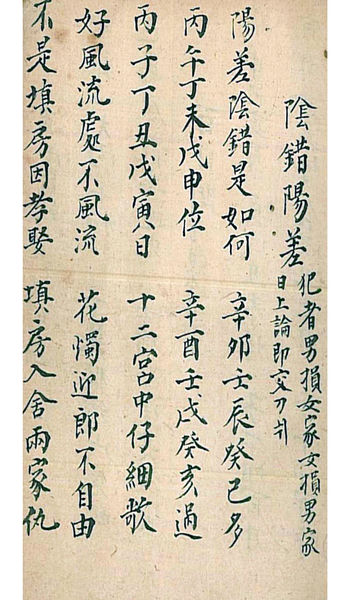 陰錯陽差
犯者男損女家女損男家
日上論即交刀
陽差陰錯是如何 辛卯壬辰癸巳多
丙午丁未戊申位 辛酉壬戌癸亥過
丙子丁丑戊寅日 十二宮中仔細歌
好風流處不風流 花燭迎郎不自由
不是填房因孝娶 填房入舍兩家仇